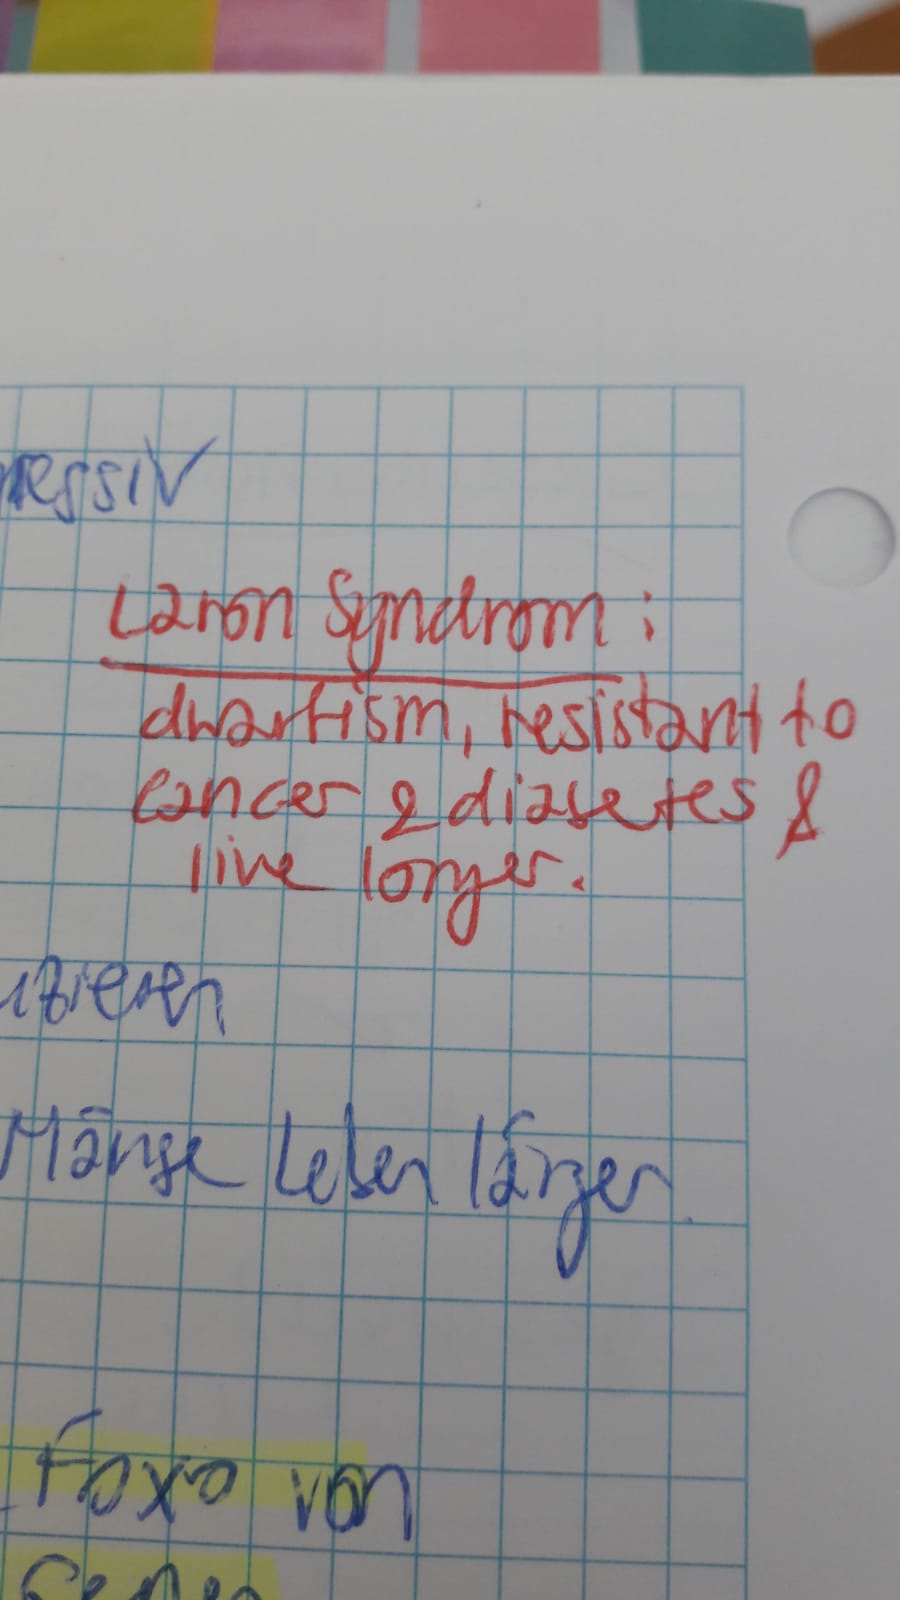 ressiv
Laron Syndrom:
dwarfism, resistant to
cancer & diabetes &
live longer.
zieren
Mäuse leben länger
Foxo von